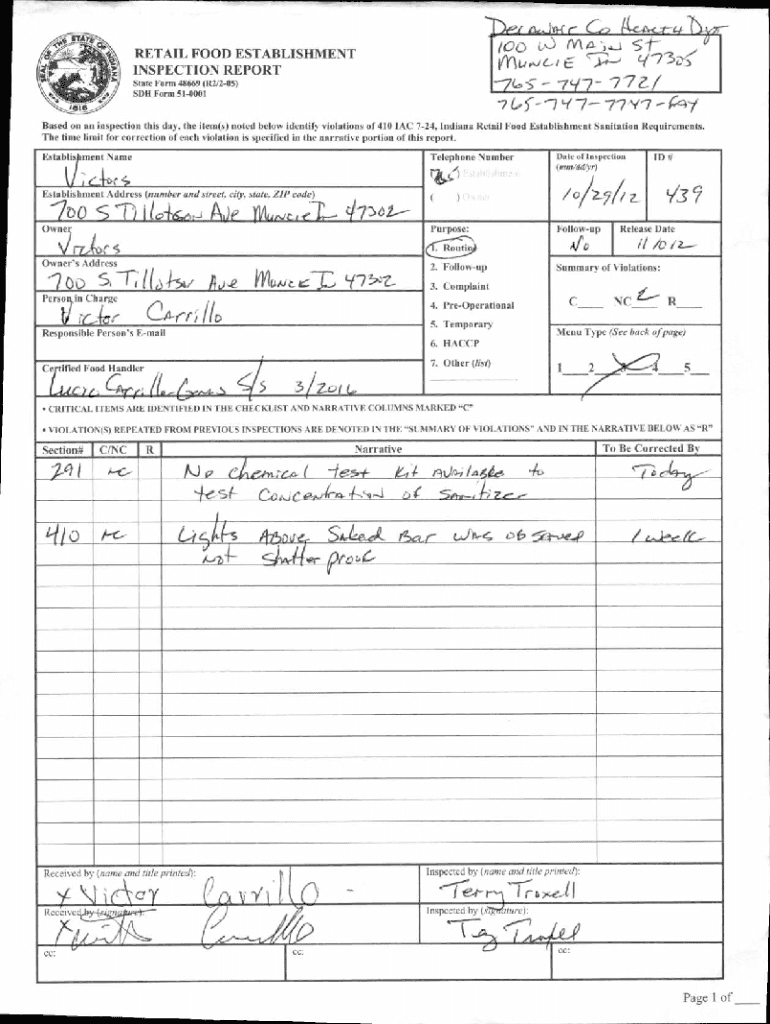 Delaware Co Health Dpt
100 W Main St
Muncie In 47305
765-747-7721
765-747-7747-Fax
SEAL OF THE STATE OF INDIANA
1816
RETAIL FOOD ESTABLISHMENT
INSPECTION REPORT
State Form 48669 (R2/2-05)
SDH Form 51-0001
Based on an inspection this day, the item(s) noted below identify violations of 410 IAC 7-24, Indiana Retail Food Establishment Sanitation Requirements.
The time limit for correction of each violation is specified in the narrative portion of this report.
Establishment Name
Victors
Telephone Number
(765) Establishment
( ) Owner
Date of Inspection
(mm/dd/yr)
10/29/12
ID #
439
Establishment Address (number and street, city, state, ZIP code)
700 S Tillotson Ave Muncie In 47302
Owner
Victors
Purpose:
1. Routine
2. Follow-up
3. Complaint
4. Pre-Operational
5. Temporary
6. HACCP
7. Other (list)
Follow-up
No
Release Date
11/10/12
Owner's Address
700 S. Tillotson Ave Muncie In 47302
Summary of Violations:
C____ NC 2 R____
Person in Charge
Victor Carrillo
Responsible Person's E-mail
Menu Type (See back of page)
1___2___3___4___5___
Certified Food Handler
Carrillo S/S 3/2016
• CRITICAL ITEMS ARE IDENTIFIED IN THE CHECKLIST AND NARRATIVE COLUMNS MARKED "C"
• VIOLATION(S) REPEATED FROM PREVIOUS INSPECTIONS ARE DENOTED IN THE "SUMMARY OF VIOLATIONS" AND IN THE NARRATIVE BELOW AS "R"
Section# C/NC R Narrative To Be Corrected By
291 NC No chemical test kit Available to Today
test Concentration of Sanitizer
410 NC Lights Above Salad Bar was observed 1 week
not Shatter proof
Received by (name and title printed):
x Victor Carrillo -
Inspected by (name and title printed):
Terry Troxell
Received by (signature):
x Carrillo
Inspected by (signature):
Troxell
cc:
cc:
cc:
Page 1 of ____